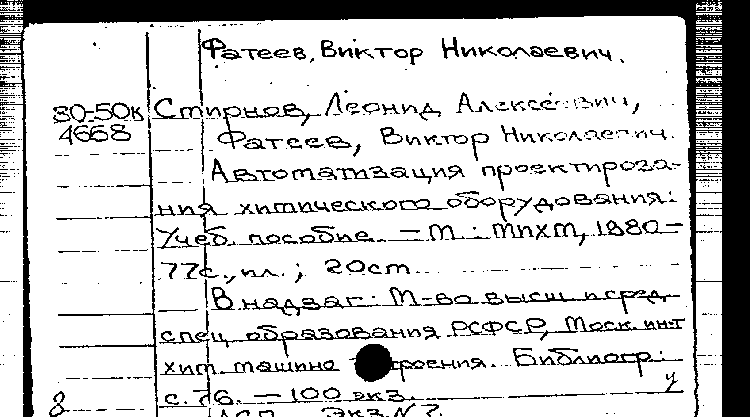 Фатеев, Виктор Николаевич.
80-50к Смирнов, Леонид Алексеевич,
4668 Фатеев, Виктор Николаевич.
Автоматизация проектирова-
ния химического оборудования:
Учеб. пособие. — М : МИХМ, 1980 —
77с., ил. ; 20см
В надзаг: М-во высш и сред.
спец образования РСФСР, Моск. ин-т
хим. машино роения. Библиогр:
с. 76. — 100 экз.
Экз. №2.